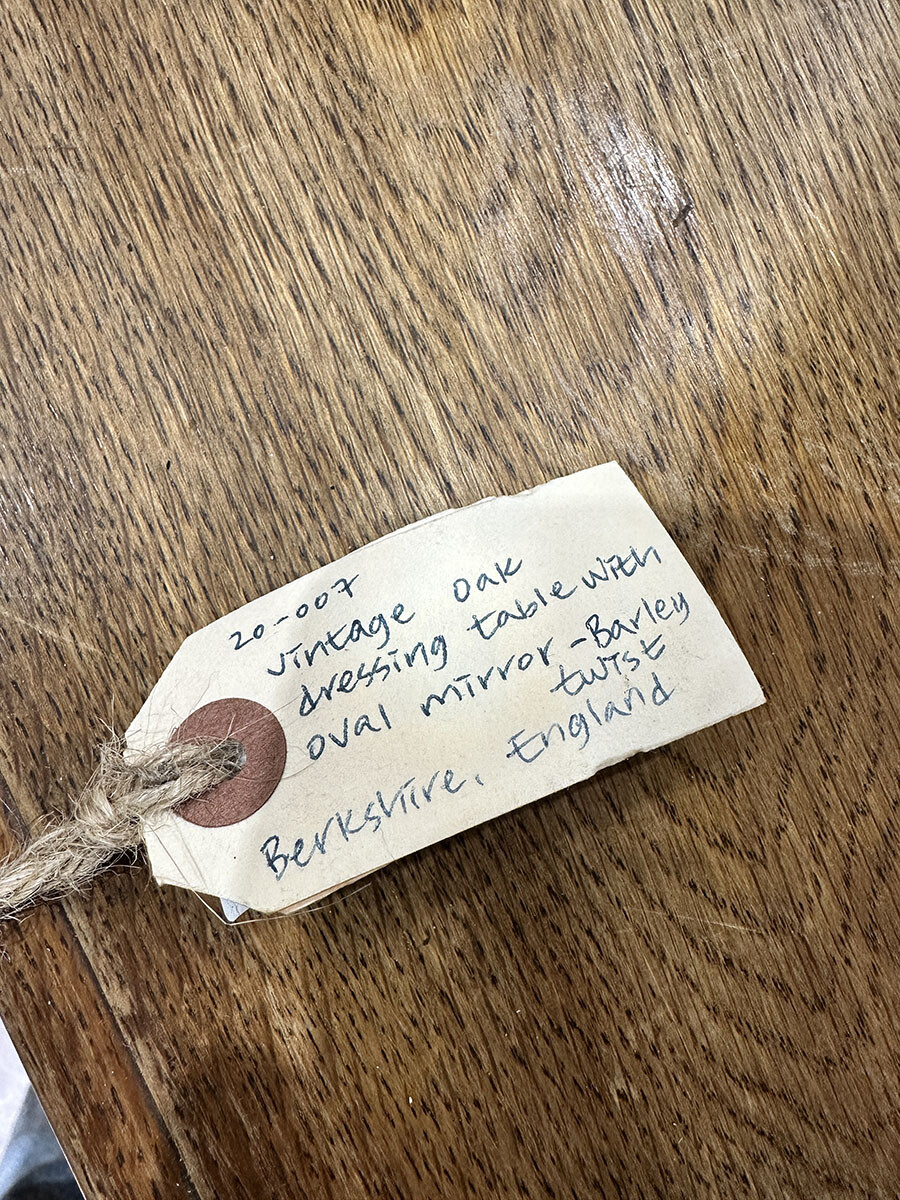 20-007
vintage oak
dressing table with
oval mirror - Barley
twist
Berkshire, England